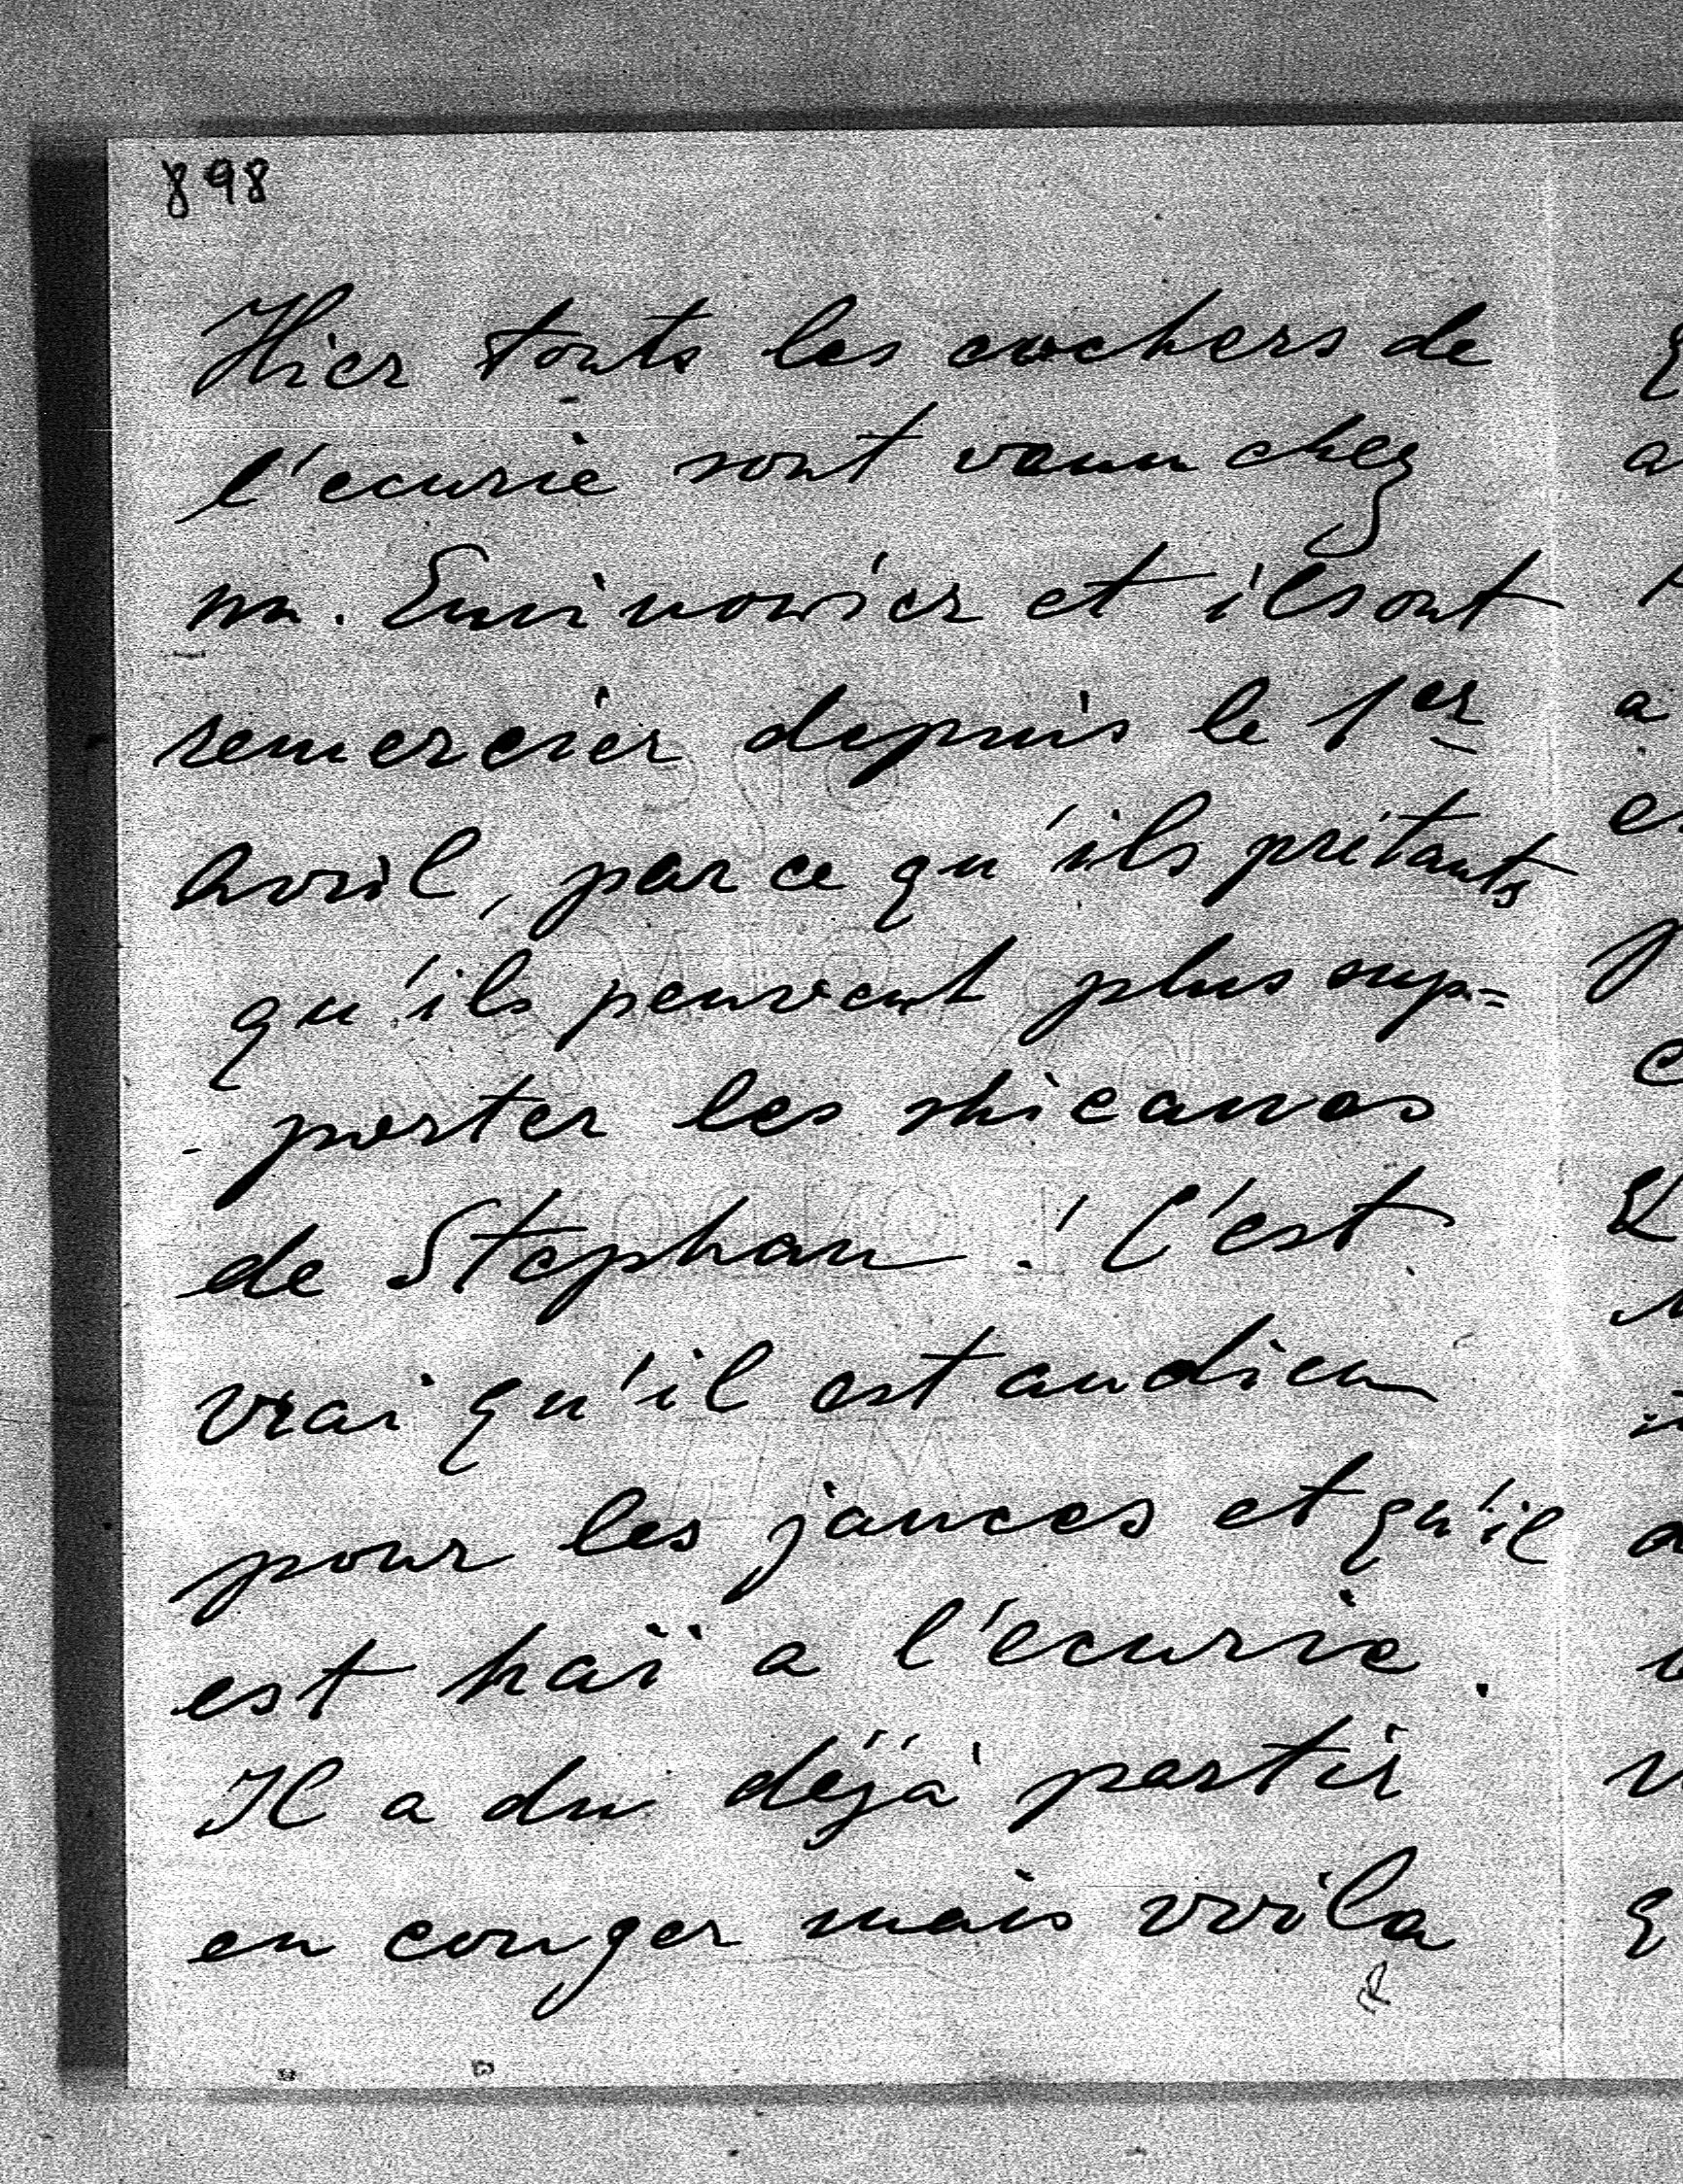 898
Hier touts les cochers de
l'ecurie sont venu chez
m. Eminowicz et ils ont
remercier depuis le 1er
Avril, par ce qu'ils prétants
qu'ils peuvent plus sup=
porter les shicanes
de Stephan! C'est
vrai qu'il est audieu
pour les jances et qu'il
est haï a l'écurie.
Il a du déjà partir
en conger mais voila